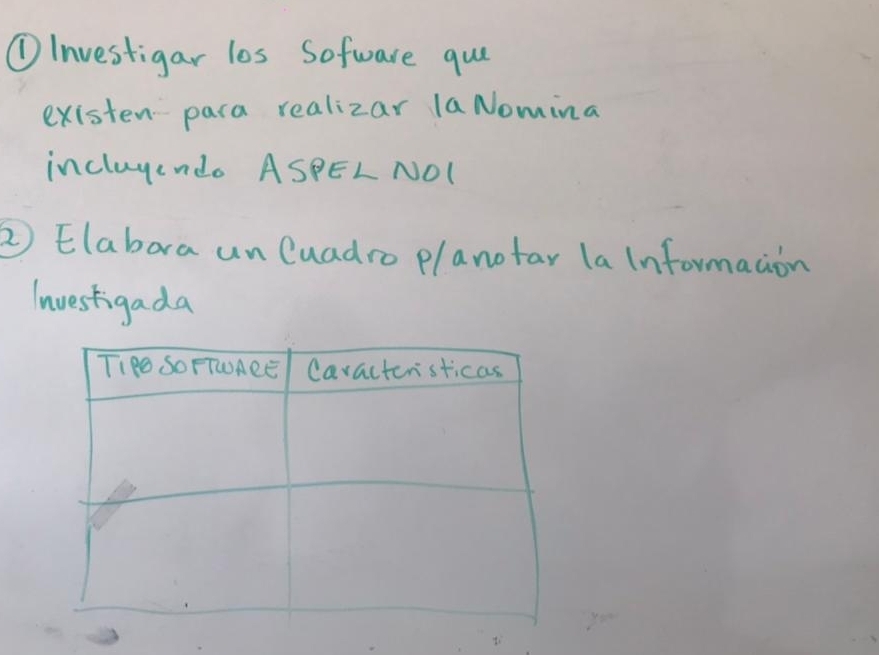 ① Investigar los Sofware que
existen para realizar la Nomina
incluyendo ASPEL NOI
② Elabora un Cuadro p/anotar la Información
Investigada
TIPO SOFTWARE Caracteristicas